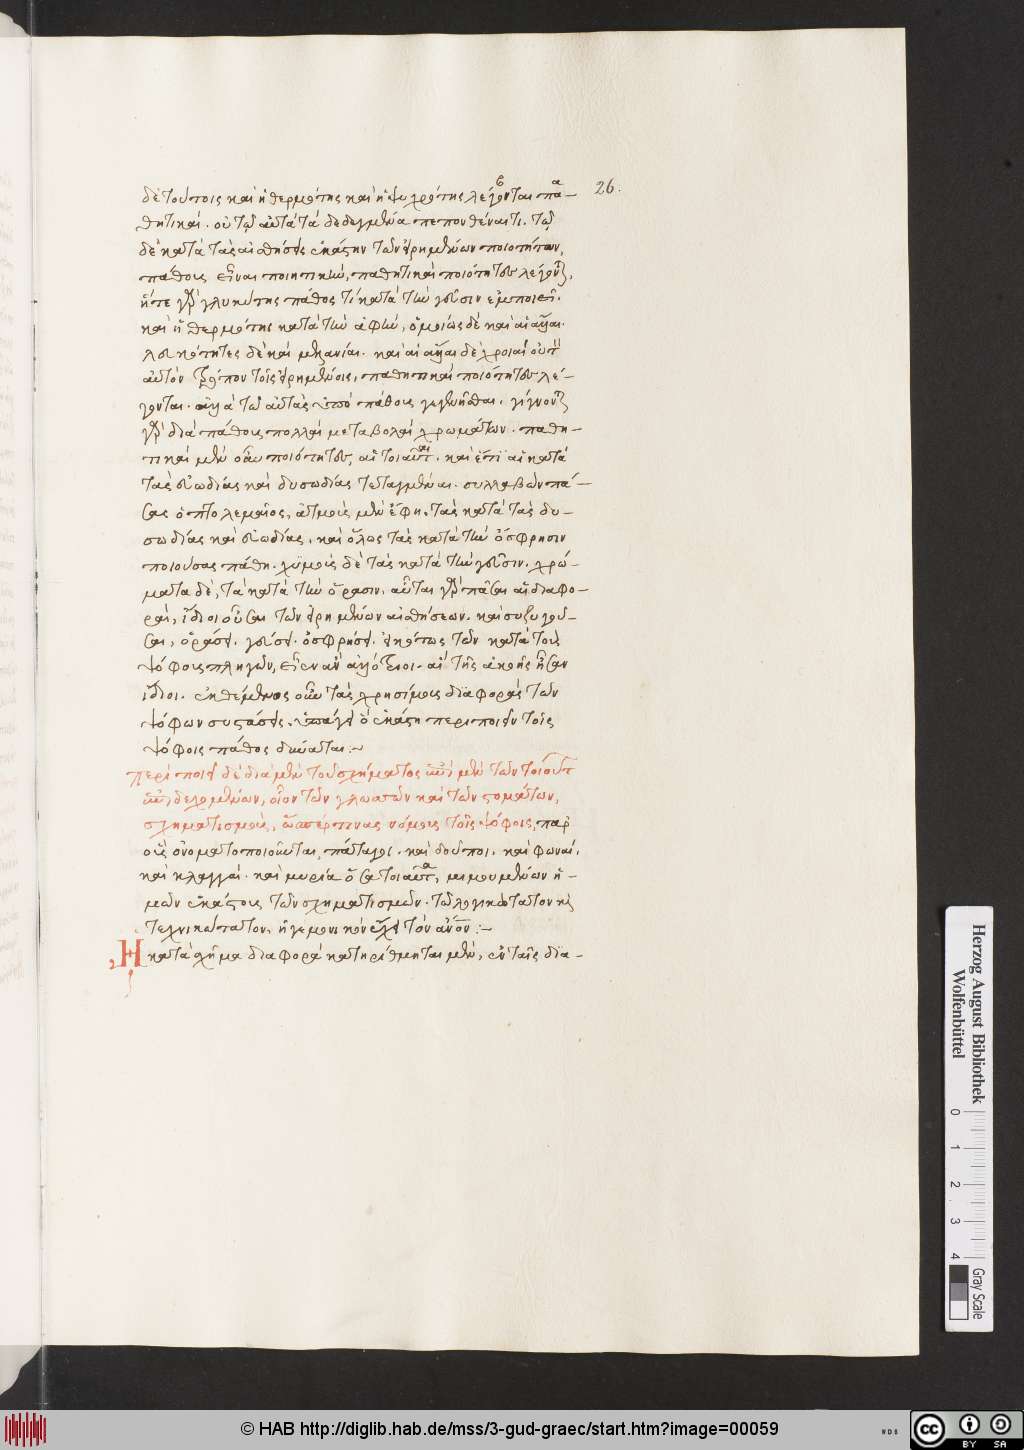 26.
δὲ τούτοις καὶ ἡ θερμότης καὶ ἡ ψυχρότης λέγονται πα-
θητικαί. οὐ τῷ αὐτὰ τὰ δεδεγμένα πεπονθέναι τι. τῷ
δὲ κατὰ τὰς αἰσθήσεις ἑκάστην τῶν εἰρημένων ποιοτήτων,
πάθους εἶναι ποιητικὴν, παθητικαὶ ποιότητες λέγοντ,
ἥτε γὰρ γλυκύτης πάθος τί κατὰ τὴν γεῦσιν ἐμποιεῖ.
καὶ ἡ θερμότης κατὰ τὴν ἁφήν, ὁμοίως δὲ καὶ αἱ ἄλλαι.
λευκότητες δὲ καὶ μελανίαι. καὶ αἱ ἄλλαι δὲ χροιαὶ οὐ τ
αὐτὸν τρόπον τοῖς εἰρημένοις, παθητικαὶ ποιότητες λέ-
γονται. ἀλλὰ τῷ αὐτὰς ὑπὸ πάθους γεγενῆσθαι. γίγνοντ
γὰρ διὰ πάθους πολλαὶ μεταβολαὶ χρωμάτων. παθη-
τικαὶ μὲν οὖν ποιότητες, αἱ τοιαῦται. καὶ ἔτι αἱ κατὰ
τὰς εὐωδίας καὶ δυσωδίας τεταγμέναι. συλλαβὼν πά-
σας ὁ πτολεμαῖος, ἀτμοὺς μὲν ἔφη. τὰς κατὰ τὰς δυ-
σωδίας καὶ εὐωδίας, καὶ ὅλως τὰς κατὰ τὴν ὄσφρησιν
ποιούσας πάθη. χυμοὺς δὲ τὰς κατὰ τὴν γεῦσιν. χρώ-
ματα δὲ, τὰ κατὰ τὴν ὅρασιν. αὗται γὰρ πᾶσαι αἱ διαφο-
ραὶ, ἴδιοι οὖσαι τῶν εἰρημένων αἰσθήσεων. καὶ συζυγοῦ-
σαι, ὁράσει. γεύσει. ὀσφρήσει. εἰκότως τῶν κατὰ τοὺς
ψόφους πληγῶν, εἶεν ἂν ἀλλότριοι. αἳ τῆς ἀκοῆς ἦσαν
ἴδιοι. ἐκθέμενος οὖν τὰς χρησίμους διαφορὰς τῶν
ψόφων συστάσει. ὑπάγει ὃ ἑκάστη περιποιεῖν τοῖς
ψόφοις πάθος δύναται:~
Περιποιεῖ δὲ διὰ μὲν τοῦ σχήματος μὲν τῶν τοιούτ
δεχομένων, οἷον τῶν γλωττῶν καὶ τῶν στομάτων,
σχηματισμοὺς, ὥσπερ τινας νόμους τοῖς ψόφοις, παρ
οὓς ὀνοματοποιοῦνται, πάταγοι. καὶ δοῦποι. καὶ φωναί.
καὶ κλαγγαί. καὶ μυρία ὅσα τοιαῦτα, μιμουμένων ἡ-
μῶν ἑκάστους τῶν σχηματισμῶν. τῷ λογικώτατον κ
τεχνικώτατον, ἡγεμονικὸν ἔχειν τὸν ἄνον:~
Ἡ κατὰ σχῆμα διαφορὰ κατηρίθμηται μὲν, ἐν ταῖς δια-
Herzog August Bibliothek
Wolfenbüttel
0 1 2 3 4
Gray Scale
© HAB http://diglib.hab.de/mss/3-gud-graec/start.htm?image=00059
WDB
cc BY SA